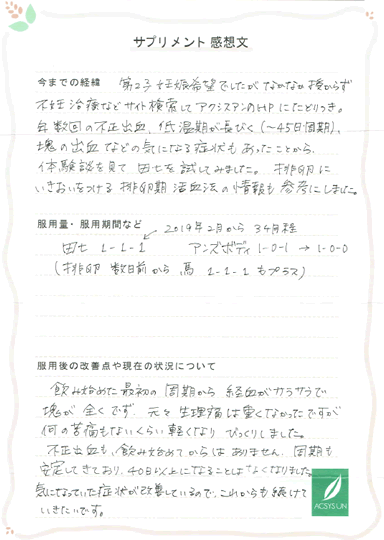 サプリメント 感想文
今までの経緯 第2子妊娠希望でしたがなかなか授からず
不妊治療などサイト検索してアクシスアンのHPにたどりつき。
年数回の不正出血、低温期が長びく(〜45日周期)、
塊の出血などの気になる症状もあったことから、
体験談を見て田七を試してみました。排卵に
いきおいをつける排卵期活血法の情報も参考にしました。
服用量・服用期間など 2019年2月から3ヶ月程
田七 1-1-1 アンズボディ 1-0-1 → 1-0-0
(排卵数日前から 馬 1-1-1 もプラス)
服用後の改善点や現在の状況について
飲み始めた最初の周期から経血がサラサラで
塊が全くでず、元々生理痛は重くなかったですが
何の苦痛もないくらい軽くなりびっくりしました。
不正出血も、飲み始めてからはありません。周期も
安定してきており、40日以上になることはなくなりました。
気になっていた症状が改善しているので、これからも続けて
いきたいです。
ACSYS.UN